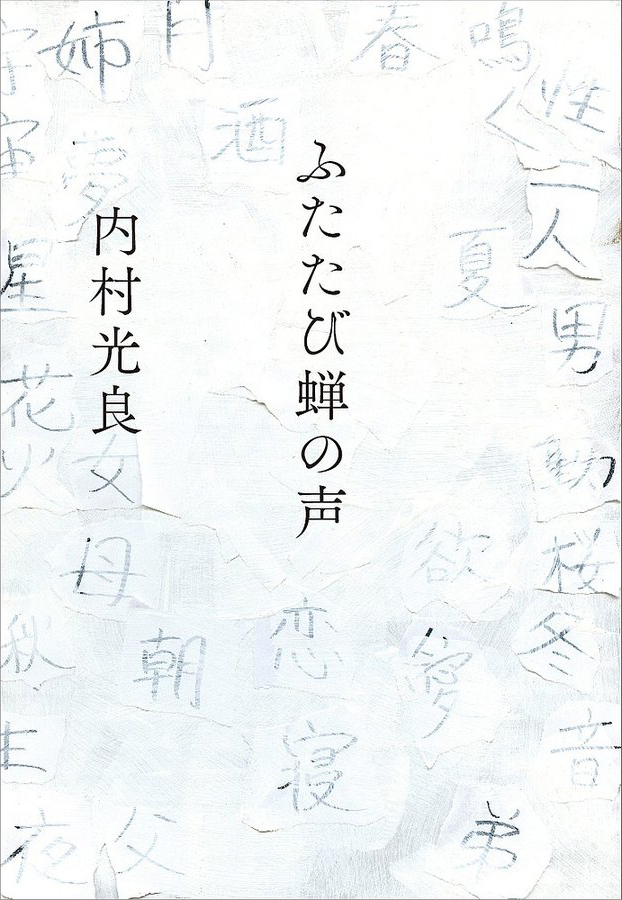 ふたたび蝉の声
内村光良
性
二人
男
動
桜
冬
音
鳴く
夏
欲
弟
春
夢
酒
恋
寝
月
朝
姉
夢
女
母
父
宇宙
星
花火
秋
生
夜